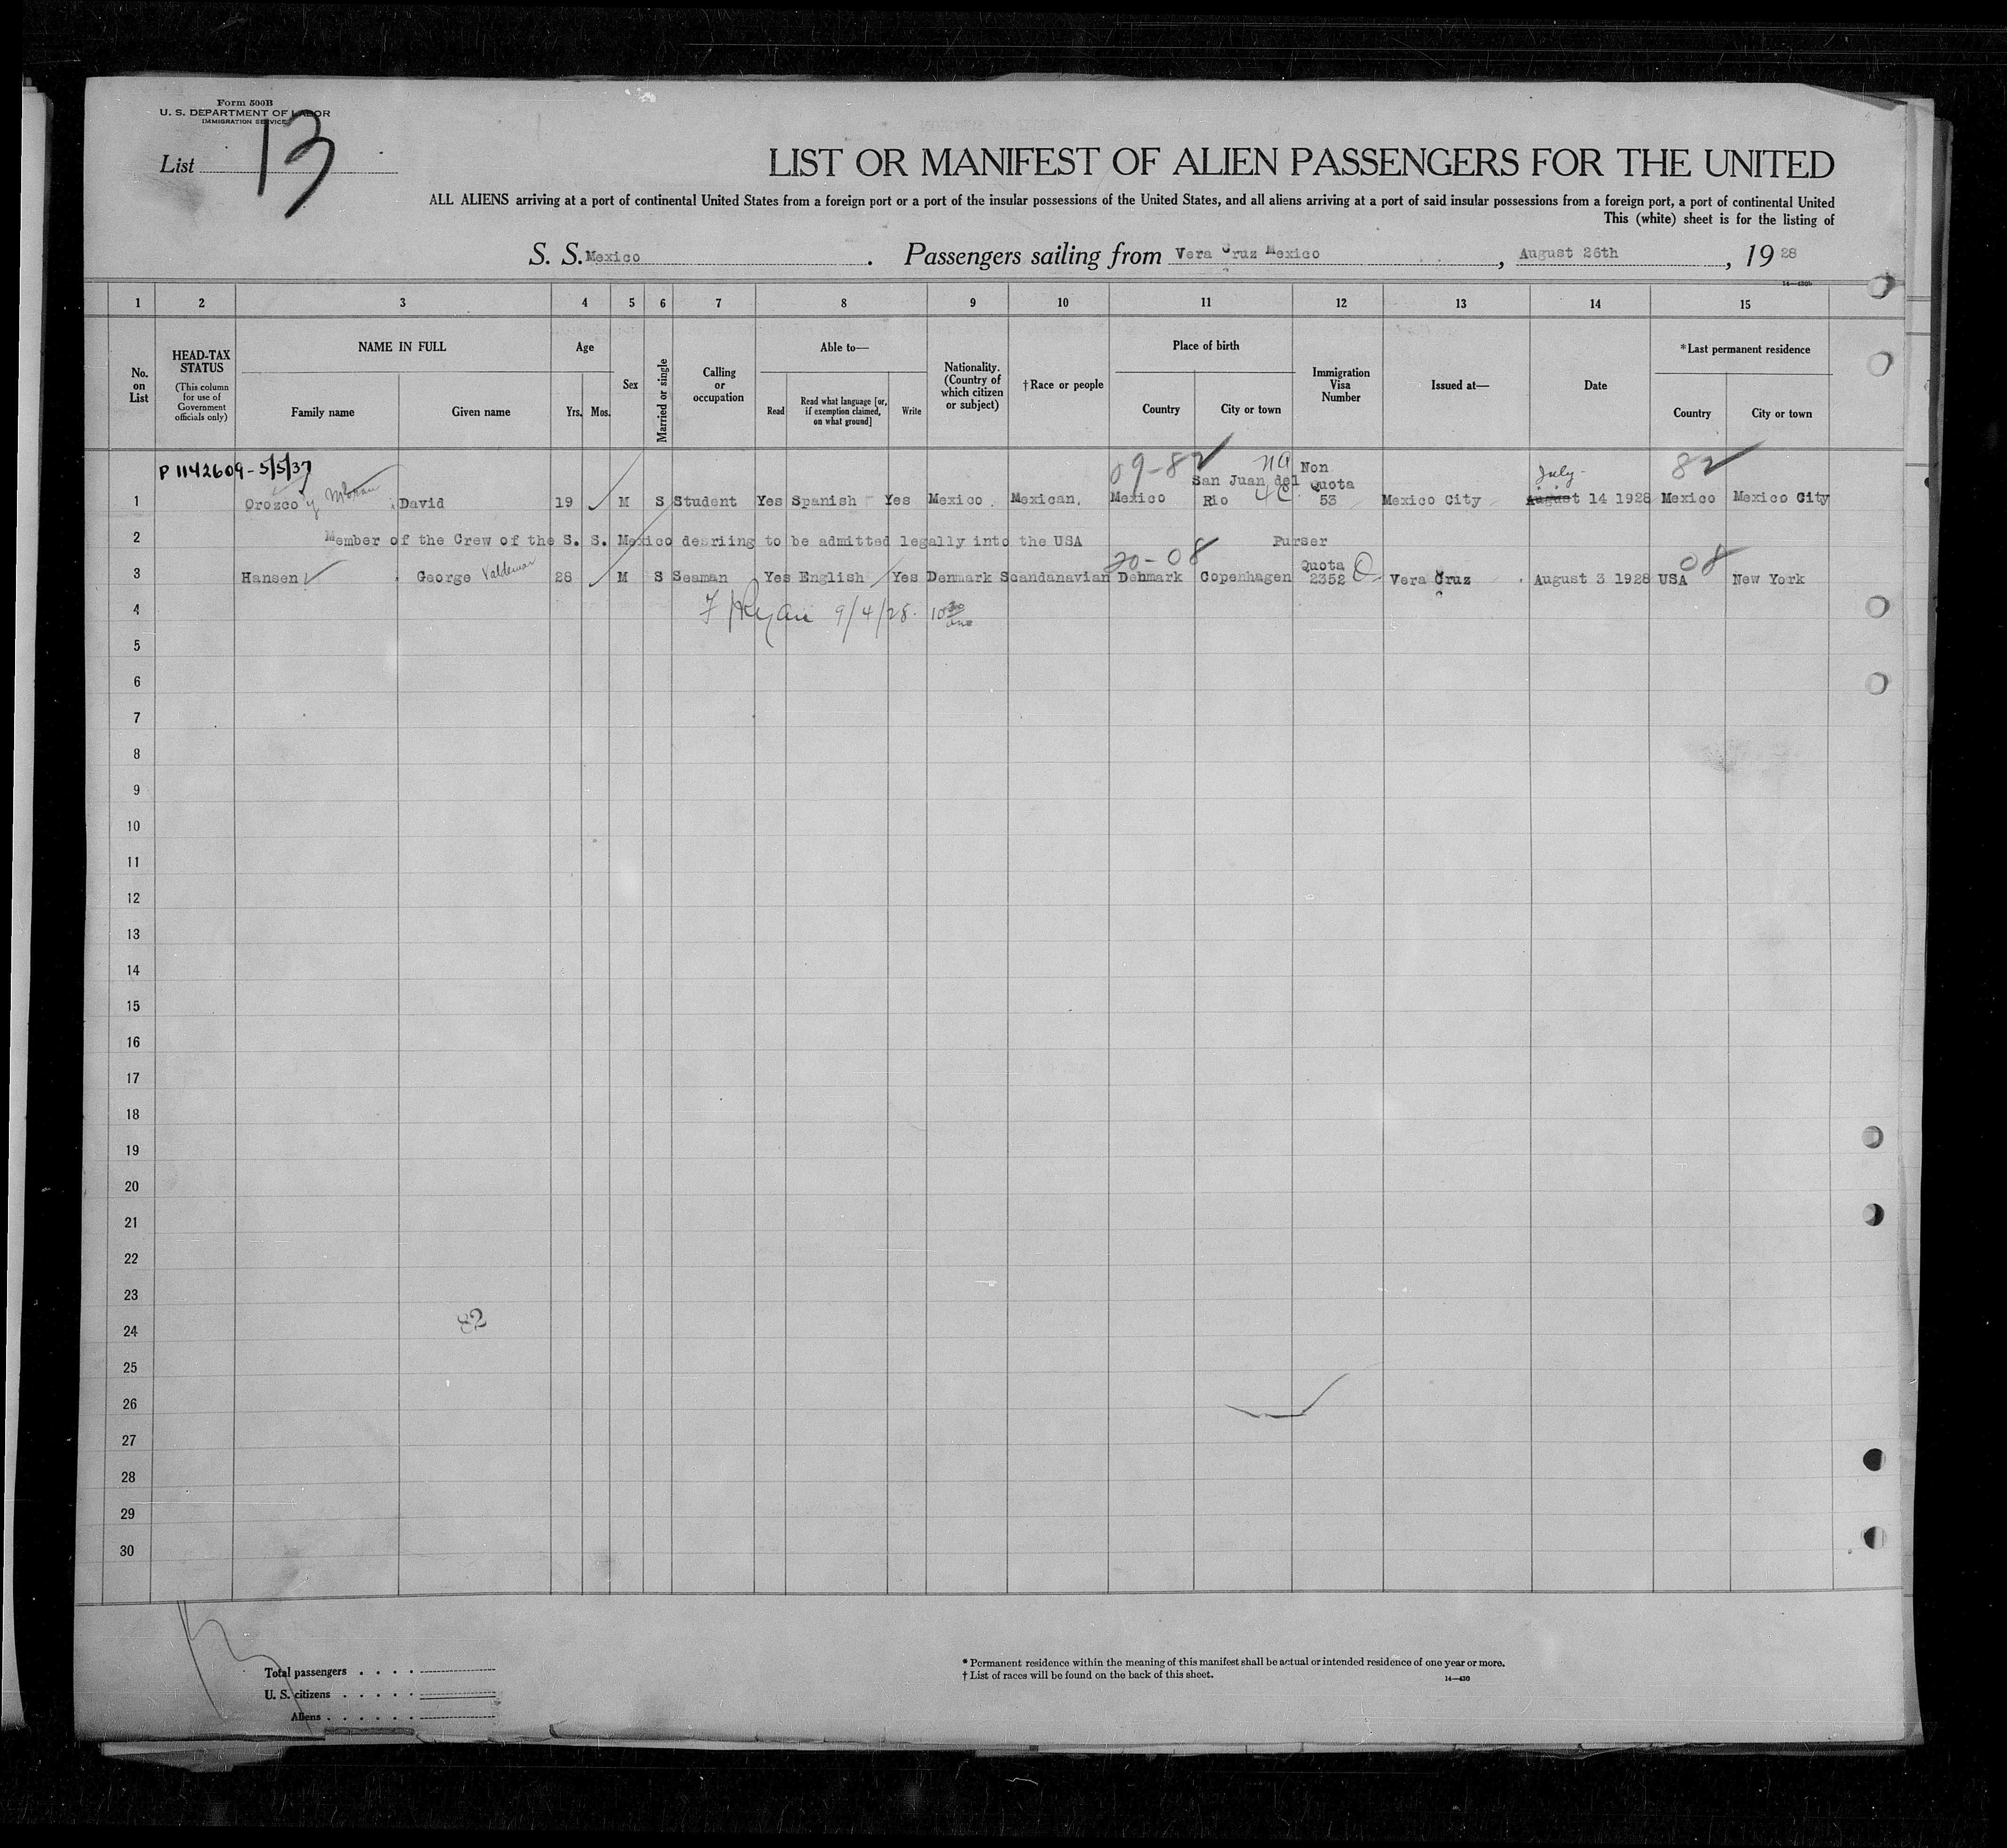 Form 500B
U. S. DEPARTMENT OF LABOR
IMMIGRATION SERVICE
List 13
LIST OR MANIFEST OF ALIEN PASSENGERS FOR THE UNITED
ALL ALIENS arriving at a port of continental United States from a foreign port or a port of the insular possessions of the United States, and all aliens arriving at a port of said insular possessions from a foreign port, a port of continental United
This (white) sheet is for the listing of
S. S. Mexico. Passengers sailing from Vera Cruz Mexico, August 26th, 1928
14—430b
1 2 3 4 5 6 7 8 9 10 11 12 13 14 15
No. on List
HEAD-TAX STATUS (This column for use of Government officials only)
NAME IN FULL Family name Given name
Age Yrs. Mos.
Sex
Married or single
Calling or occupation
Able to— Read Read what language [or, if exemption claimed, on what ground] Write
Nationality. (Country of which citizen or subject)
†Race or people
Place of birth Country City or town
Immigration Visa Number
Issued at—
Date
*Last permanent residence Country City or town
P 1142609 - 5/5/37 09-82 na 82
1 Orozco y Moran David 19 M S Student Yes Spanish Yes Mexico Mexican. Mexico San Juan del Rio 4C Non Quota 53 Mexico City July August 14 1928 Mexico Mexico City
2 Member of the Crew of the S. S. Mexico desriing to be admitted legally into the USA Purser
20-08 08
3 Hansen George Valdemar 28 M S Seaman Yes English Yes Denmark Scandanavian Denmark Copenhagen Quota 2352 Vera Cruz August 3 1928 USA New York
4 F Ryan 9/4/28.
5
6
7
8
9
10
11
12
13
14
15
16
17
18
19
20
21
22
23
24 82
25
26
27
28
29
30
Total passengers . . . .
U. S. citizens . . . . .
Aliens . . . . . .
* Permanent residence within the meaning of this manifest shall be actual or intended residence of one year or more.
† List of races will be found on the back of this sheet.
14—430